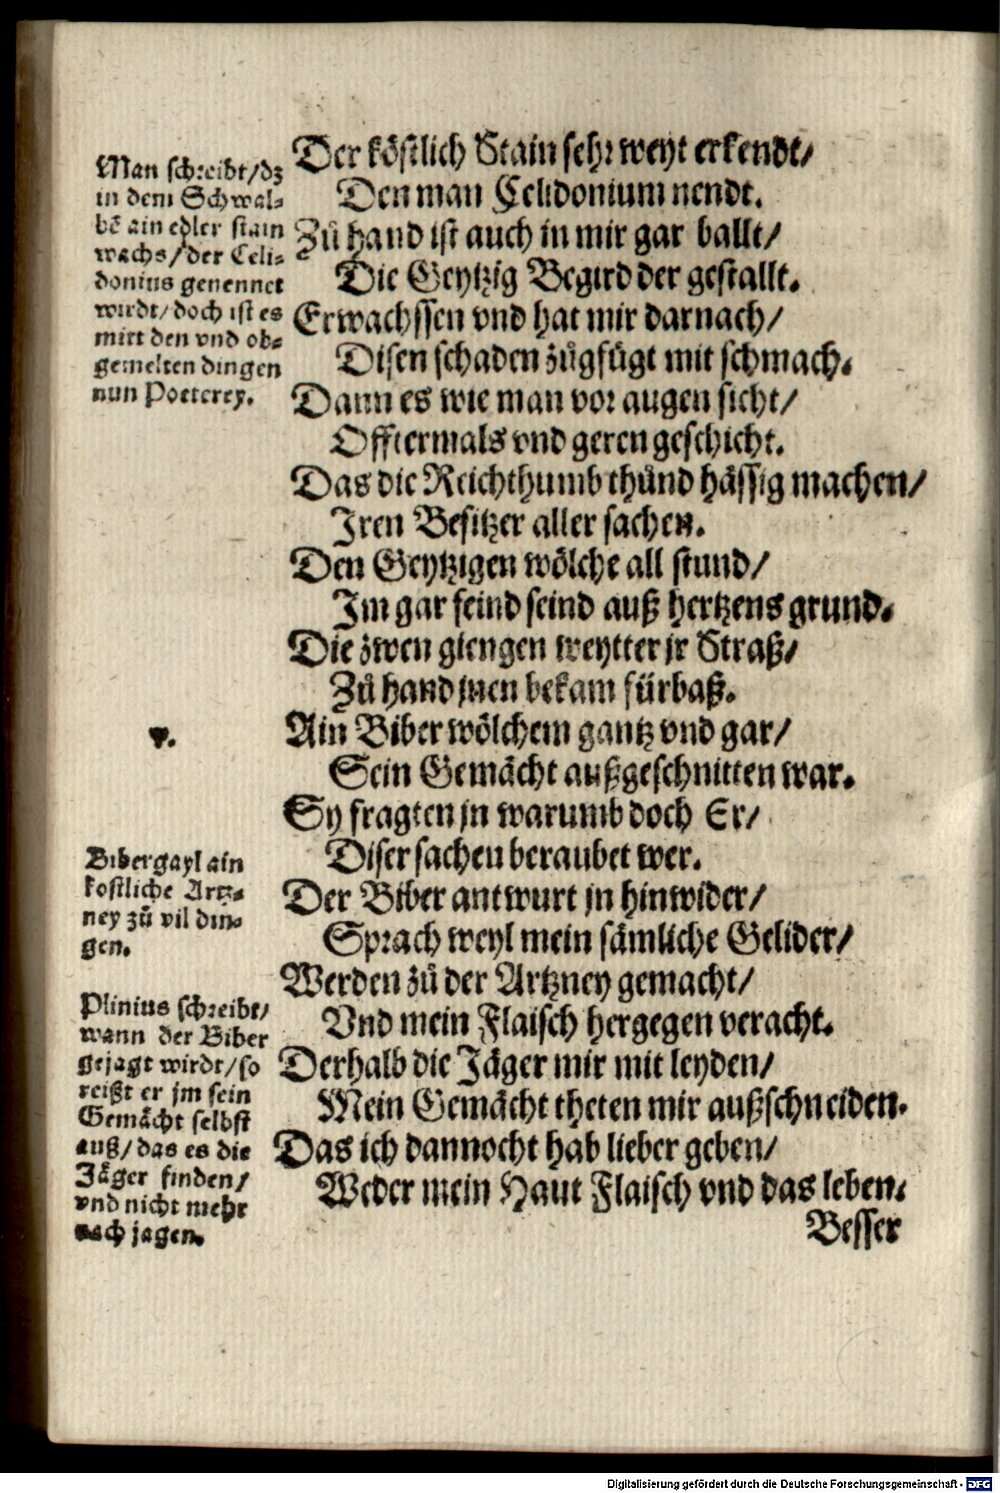 Man schreibt/dz
in dem Schwal-
bē ain edler stain
wachs/der Celi-
donius genennet
wirdt/doch ist es
mitt den vnd ob-
gemelten dingen
nun Poeterey.
Der köstlich Stain sehr weyt erkendt/
Den man Celidonium nendt.
Zů hand ist auch in mir gar ballt/
Die Geytzig Begird der gestallt.
Erwachssen vnd hat mir darnach/
Disen schaden zůgfůgt mit schmach.
Dann es wie man vor augen sicht/
Offtermals vnd geren geschicht.
Das die Reichthumb thůnd hässig machen/
Iren Besitzer aller sachen.
Den Geytzigen wölche all stund/
Im gar feind seind auß hertzens grund.
Die zwen giengen weytter jr Straß/
Zů hand jnen bekam fürbaß.
v.
Ain Biber wölchem gantz vnd gar/
Sein Gemächt außgeschnitten war.
Sy fragten jn warumb doch Er/
Diser sachen beraubet wer.
Bibergayl ain
kostliche Artz-
ney zů vil din-
gen.
Der Biber antwurt jn hinwider/
Sprach weyl mein sämliche Gelider/
Werden zů der Artzney gemacht/
Vnd mein Flaisch hergegen veracht.
Plinius schreibt/
wann der Biber
gejagt wirdt/so
reißt er jm sein
Gemächt selbst
auß/das es die
Jäger finden/
vnd nicht mehr
nach jagen.
Derhalb die Jäger mir mit leyden/
Mein Gemächt theten mir außschneiden.
Das ich dannocht hab lieber geben/
Weder mein Haut Flaisch vnd das leben.
Besser
Digitalisierung gefördert durch die Deutsche Forschungsgemeinschaft - DFG